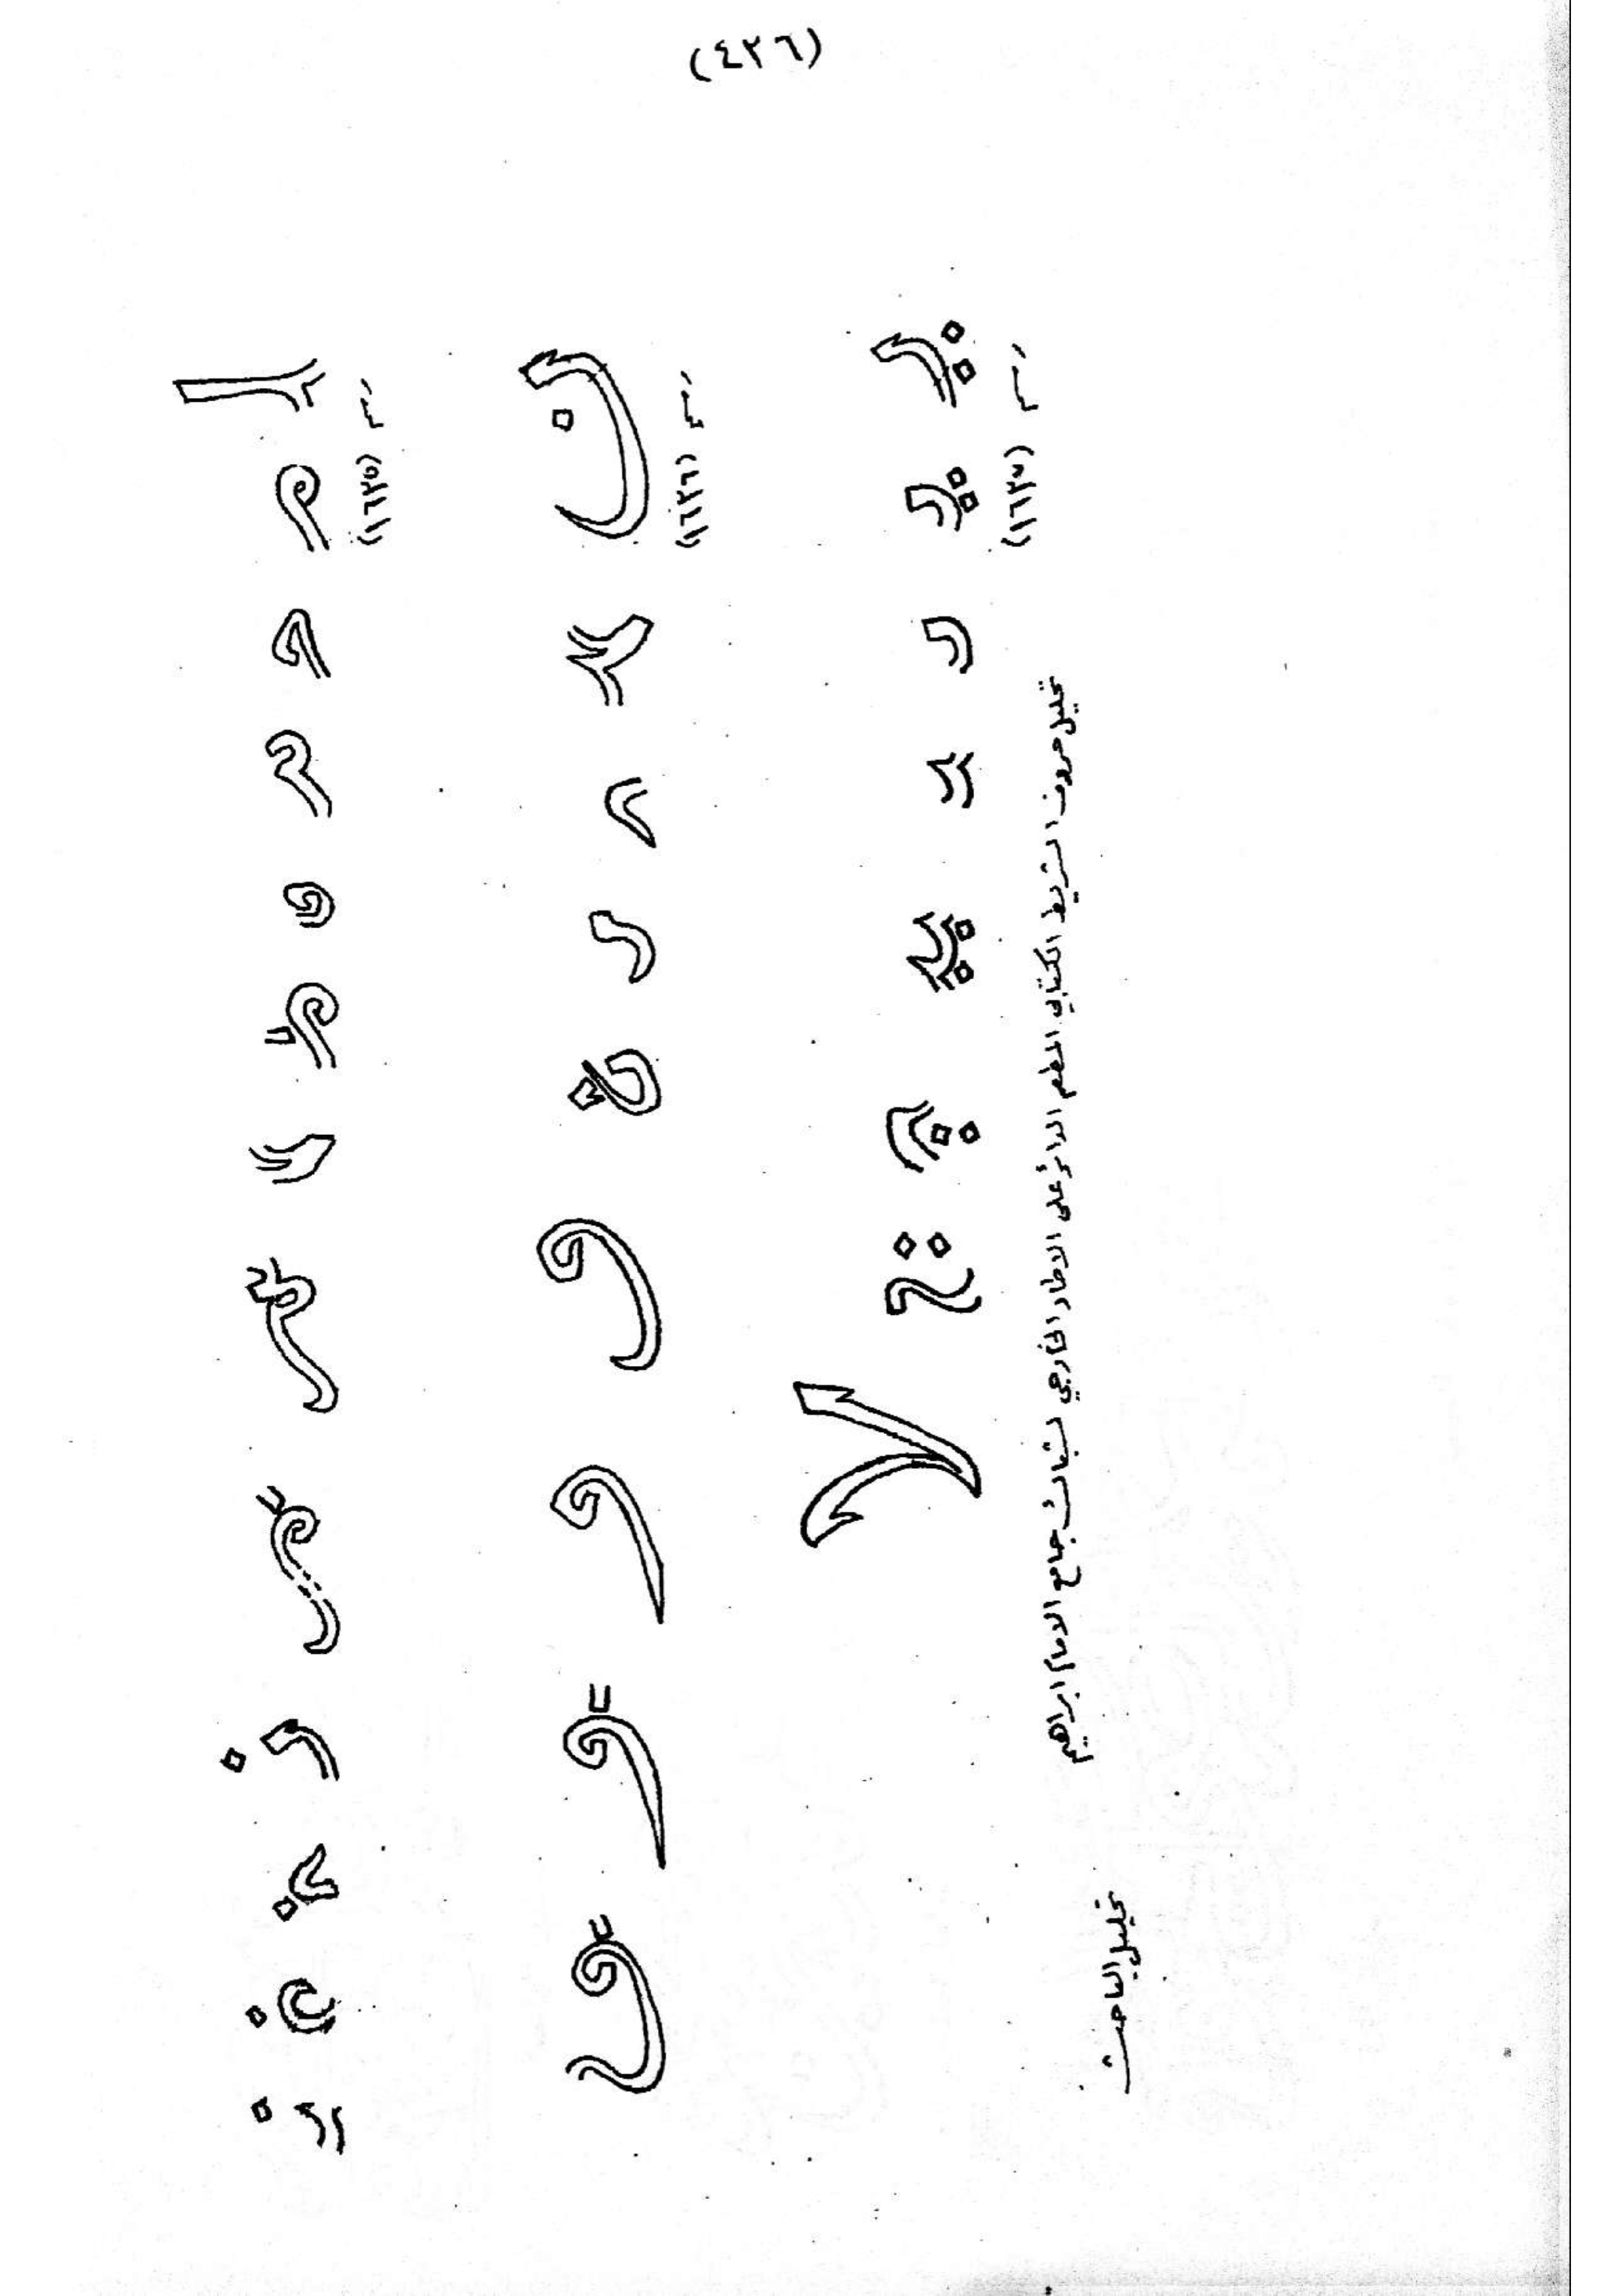 (٤٢٦)
رسم (١٦٢٥)
رسم (١٦٢٦)
رسم (١٦٢٧)
تحليل حروف الشريط الكتابي المطعم الدائر على الاطار الخارجي لشباك جامع الامام ابراهيم
تحليل الباحث